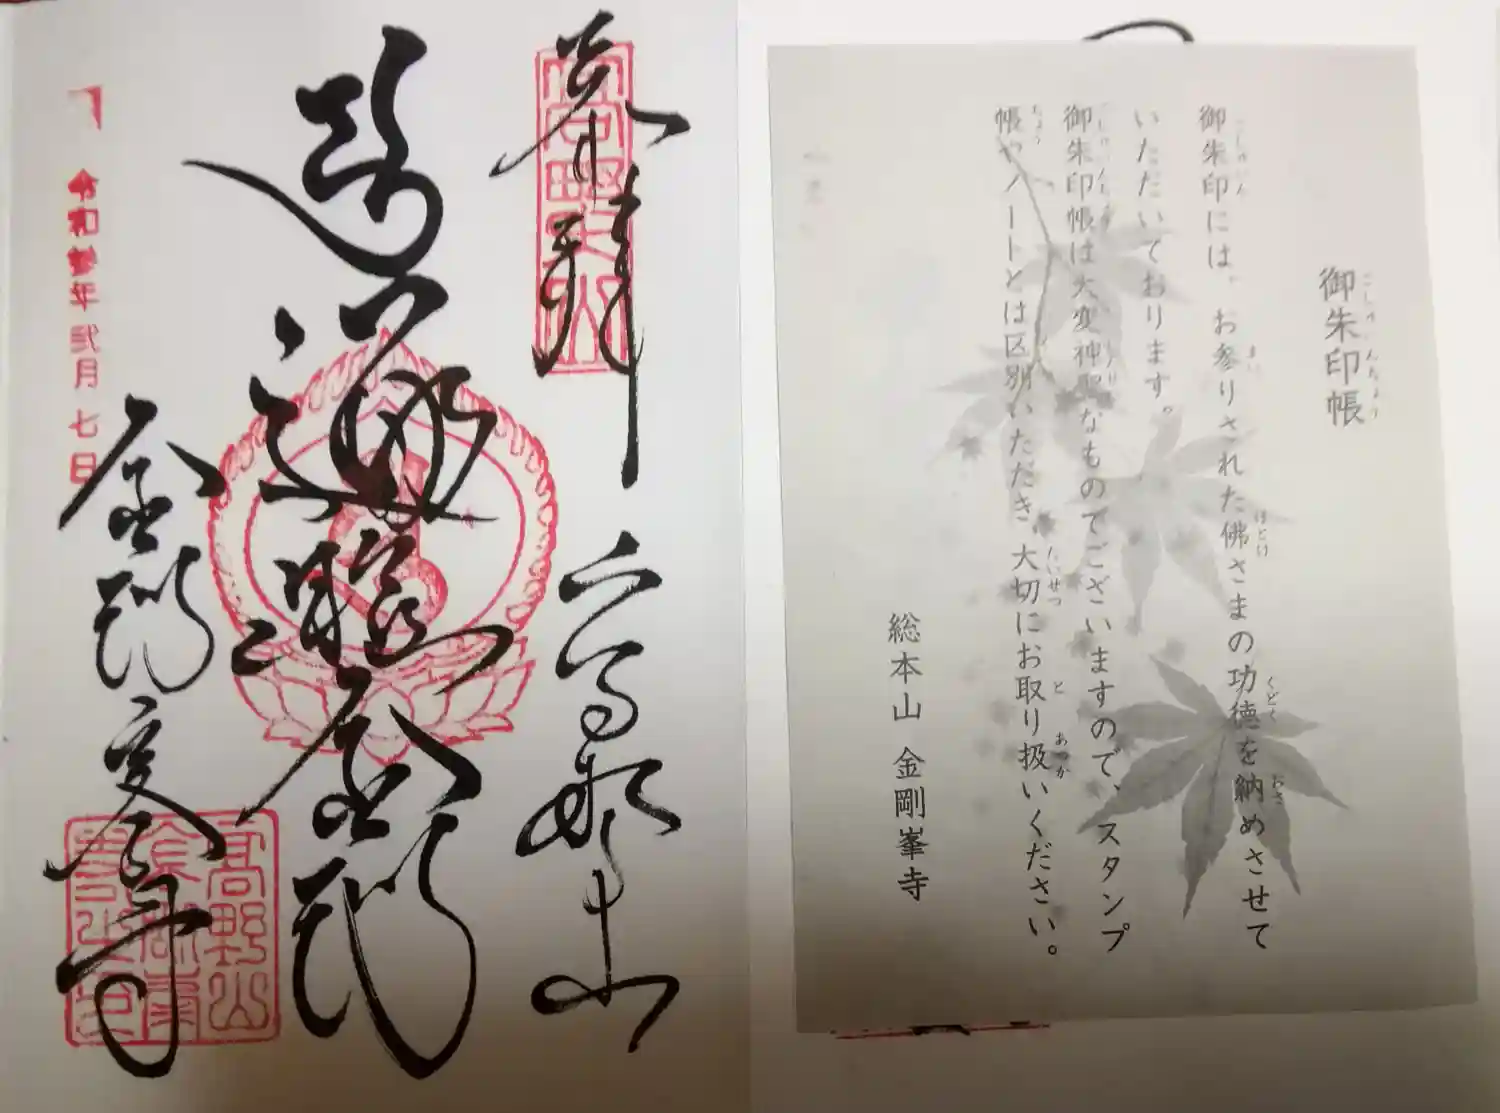 御朱印帳
御朱印には、お参りされた佛さまの功徳を納めさせて
いただいております。
御朱印帳は大変神聖なものでございますので、スタンプ
帳やノートとは区別いただき、大切にお取り扱いください。
総本山 金剛峯寺
奉拝 高野山
高野山
遍照金剛
令和参年弐月七日
金剛峯寺